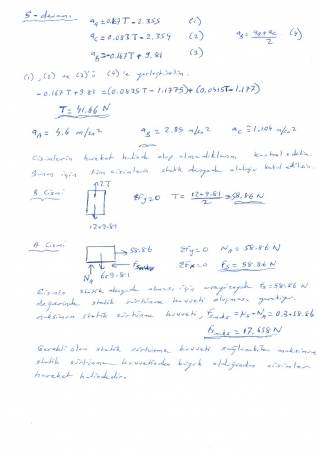 5- devamı
a_A = 0.167T - 2.355 (1)
a_C = 0.083T - 2.354 (2) a_B = (a_A + a_C)/2 (4)
a_B = -0.167T + 9.81 (3)
(1), (2) ve (3)'ü (4)'e yerleştirelim.
-0.167T + 9.81 = (0.0835T - 1.1775) + (0.0415T - 1.177)
T = 41.66 N
a_A = 4.6 m/sn² a_B = 2.85 m/sn² a_C = 1.104 m/sn²
Cisimlerin hareket halinde olup olmadıklarını kontrol edelim.
Bunun için tüm cisimlerin statik dengede olduğu kabul edilsin.
B Cismi
2T
ΣFy=0 T = 12*9.81/2 = 58.86 N
12*9.81
A Cismi
58.86 ΣFy=0 N_A = 58.86 N
N_A 6*9.81 ΣFx=0 F_s = 58.86 N
Cismin statik dengede olması için yüzeyde F_s = 58.86 N
değerinde statik sürtünme kuvveti oluşması gerekir.
maksimum statik sürtünme kuvveti, F_smaks = k_s * N_A = 0.3*58.86
F_smaks = 17.658 N
Gerekli olan statik sürtünme kuvveti sağlanabilen maksimum
statik sürtünme kuvvetinden büyük olduğundan cisimler
hareket halindedir.